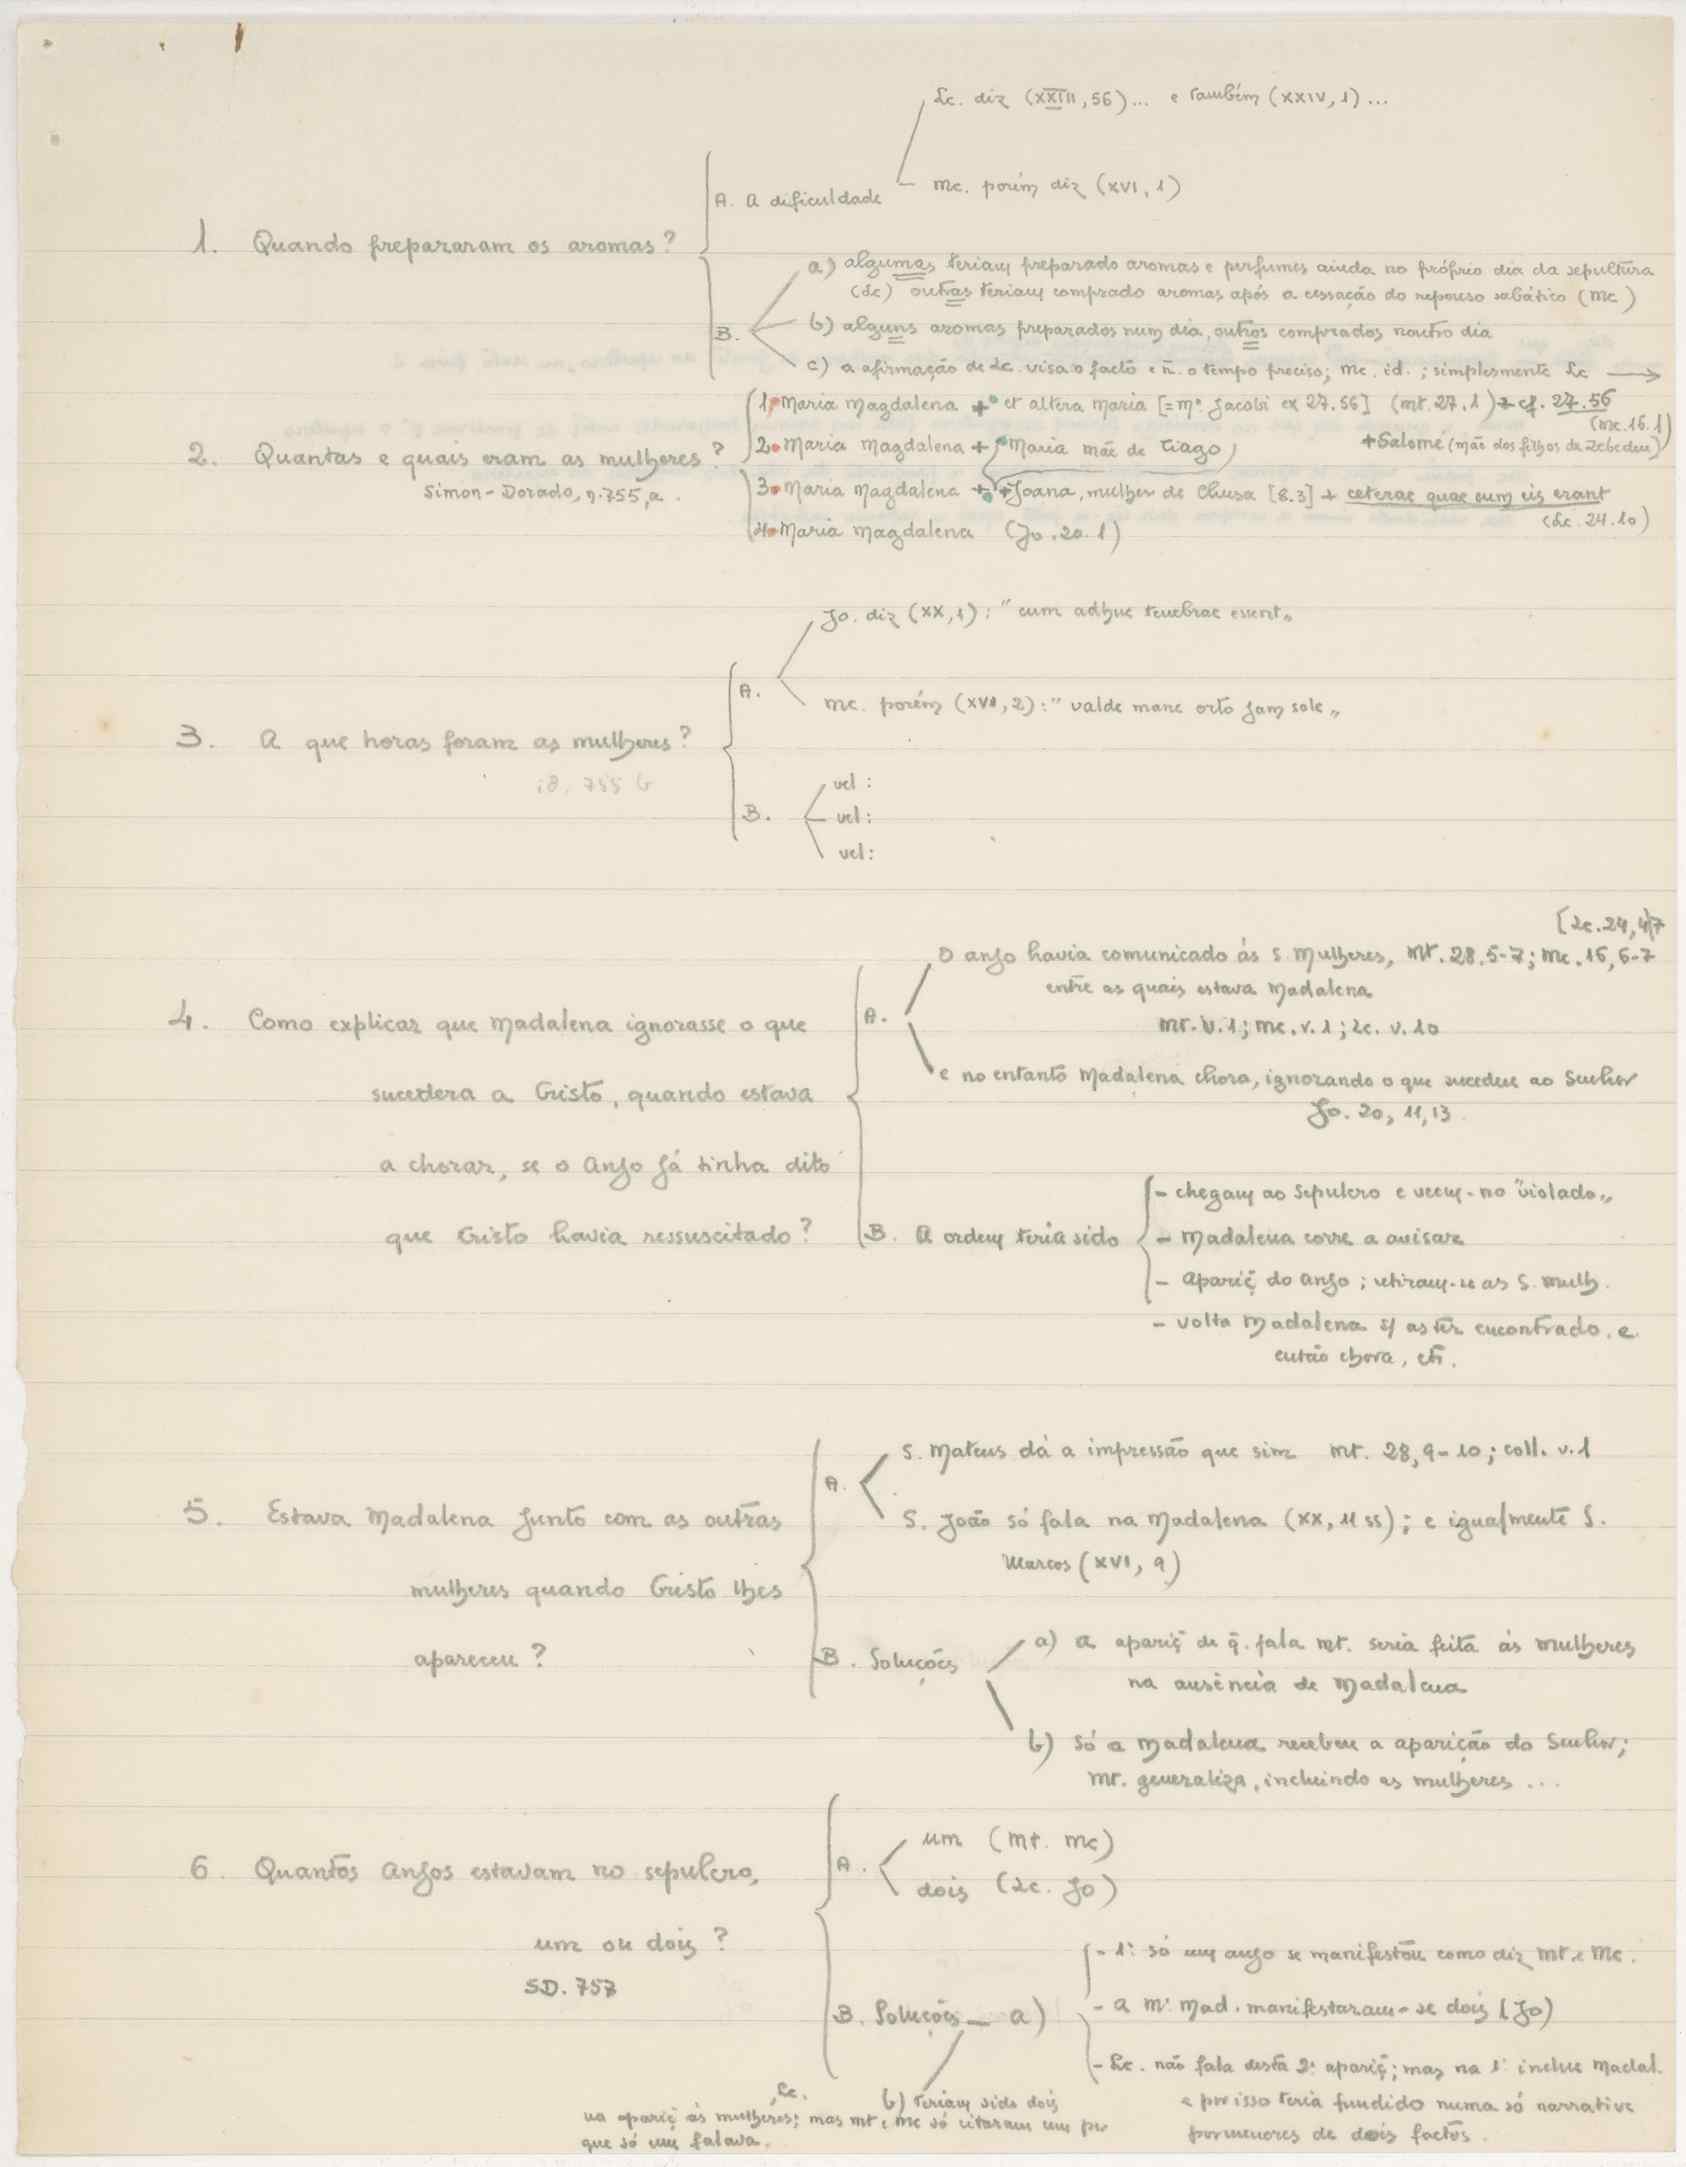 Lc. diz (XXIII, 56)... e também (XXIV, 1)...
A. A dificuldade
Mc. porém diz (XVI, 1)
1. Quando prepararam os aromas?
a) algumas teriam preparado aromas e perfumes ainda no próprio dia da sepultura
(Lc) outras teriam comprado aromas após a cessação do repouso sabático (Mc)
B.
b) alguns aromas preparados num dia, outros comprados noutro dia
c) a afirmação de Lc. visa o facto e ñ. o tempo preciso; Mc. id.; simplesmente Lc →
1. Maria Magdalena + et altera Maria [= Mª Jacobi ex 27.56] (Mt. 27.1) + cf. 27.56
(Mc. 16.1)
2. Quantas e quais eram as mulheres?
2. Maria Magdalena + Maria mãe de Tiago + Salomé (mãe dos filhos de Zebedeu)
Simon-Dorado, n. 755, a.
3. Maria Magdalena + + Joana, mulher de Chusa [8.3] + ceterae quae cum eis erant
(Lc. 24.10)
4. Maria Magdalena (Jo. 20.1)
Jo. diz (XX, 1): "cum adhuc tenebrae essent"
A.
Mc. porém (XVI, 2): "valde mane orto jam sole"
3. A que horas foram as mulheres?
iB. 755 b
vel:
B. vel:
vel:
[Lc. 24, 4]7
O anjo havia comunicado ás S. Mulheres, Mt. 28. 5-7; Mc. 16, 6-7
entre as quais estava Madalena
4. Como explicar que Madalena ignorasse o que
A.
Mt. v. 1; Mc. v. 1; Lc. v. 10
e no entanto Madalena chora, ignorando o que sucedeu ao Senhor
sucedera a Cristo, quando estava
Jo. 20, 11, 13
a chorar, se o Anjo já tinha dito
- chegam ao sepulcro e veem-no "violado"
que Cristo havia ressuscitado?
B. A ordem teria sido
- Madalena corre a avisar
- apariç̃ do anjo; retiram-se as S. Mulh.
- volta Madalena s/ as ter encontrado. e
então chora, etc.
S. Mateus dá a impressão que sim Mt. 28, 9-10; coll. v. 1
A.
5. Estava Madalena junto com as outras
S. João só fala na Madalena (XX, 11 ss); e igualmente S.
Marcos (XVI, 9)
mulheres quando Cristo lhes
apareceu?
B. Soluções
a) a apariç̃ de q̃. fala Mt. seria feita ás mulheres
na ausência de Madalena
b) só a Madalena recebeu a aparição do Senhor;
Mt. generaliza, incluindo as mulheres ...
um (Mt. Mc)
6. Quantos Anjos estavam no sepulcro,
A.
dois (Lc. Jo)
um ou dois?
SD. 757
- 1º: só um anjo se manifestou como diz Mt. e Mc.
B. Soluções — a)
- a Mª Mad. manifestaram-se dois (Jo)
- Lc. não fala desta 2ª apariç̃; mas na 1ª inclue Madal.
e por isso teria fundido numa só narrativa
pormenores de dois factos.
b) teriam sido dois
Lc.
na apariç̃ ás mulheres; mas Mt e Mc só citaram um por
que só um falava.